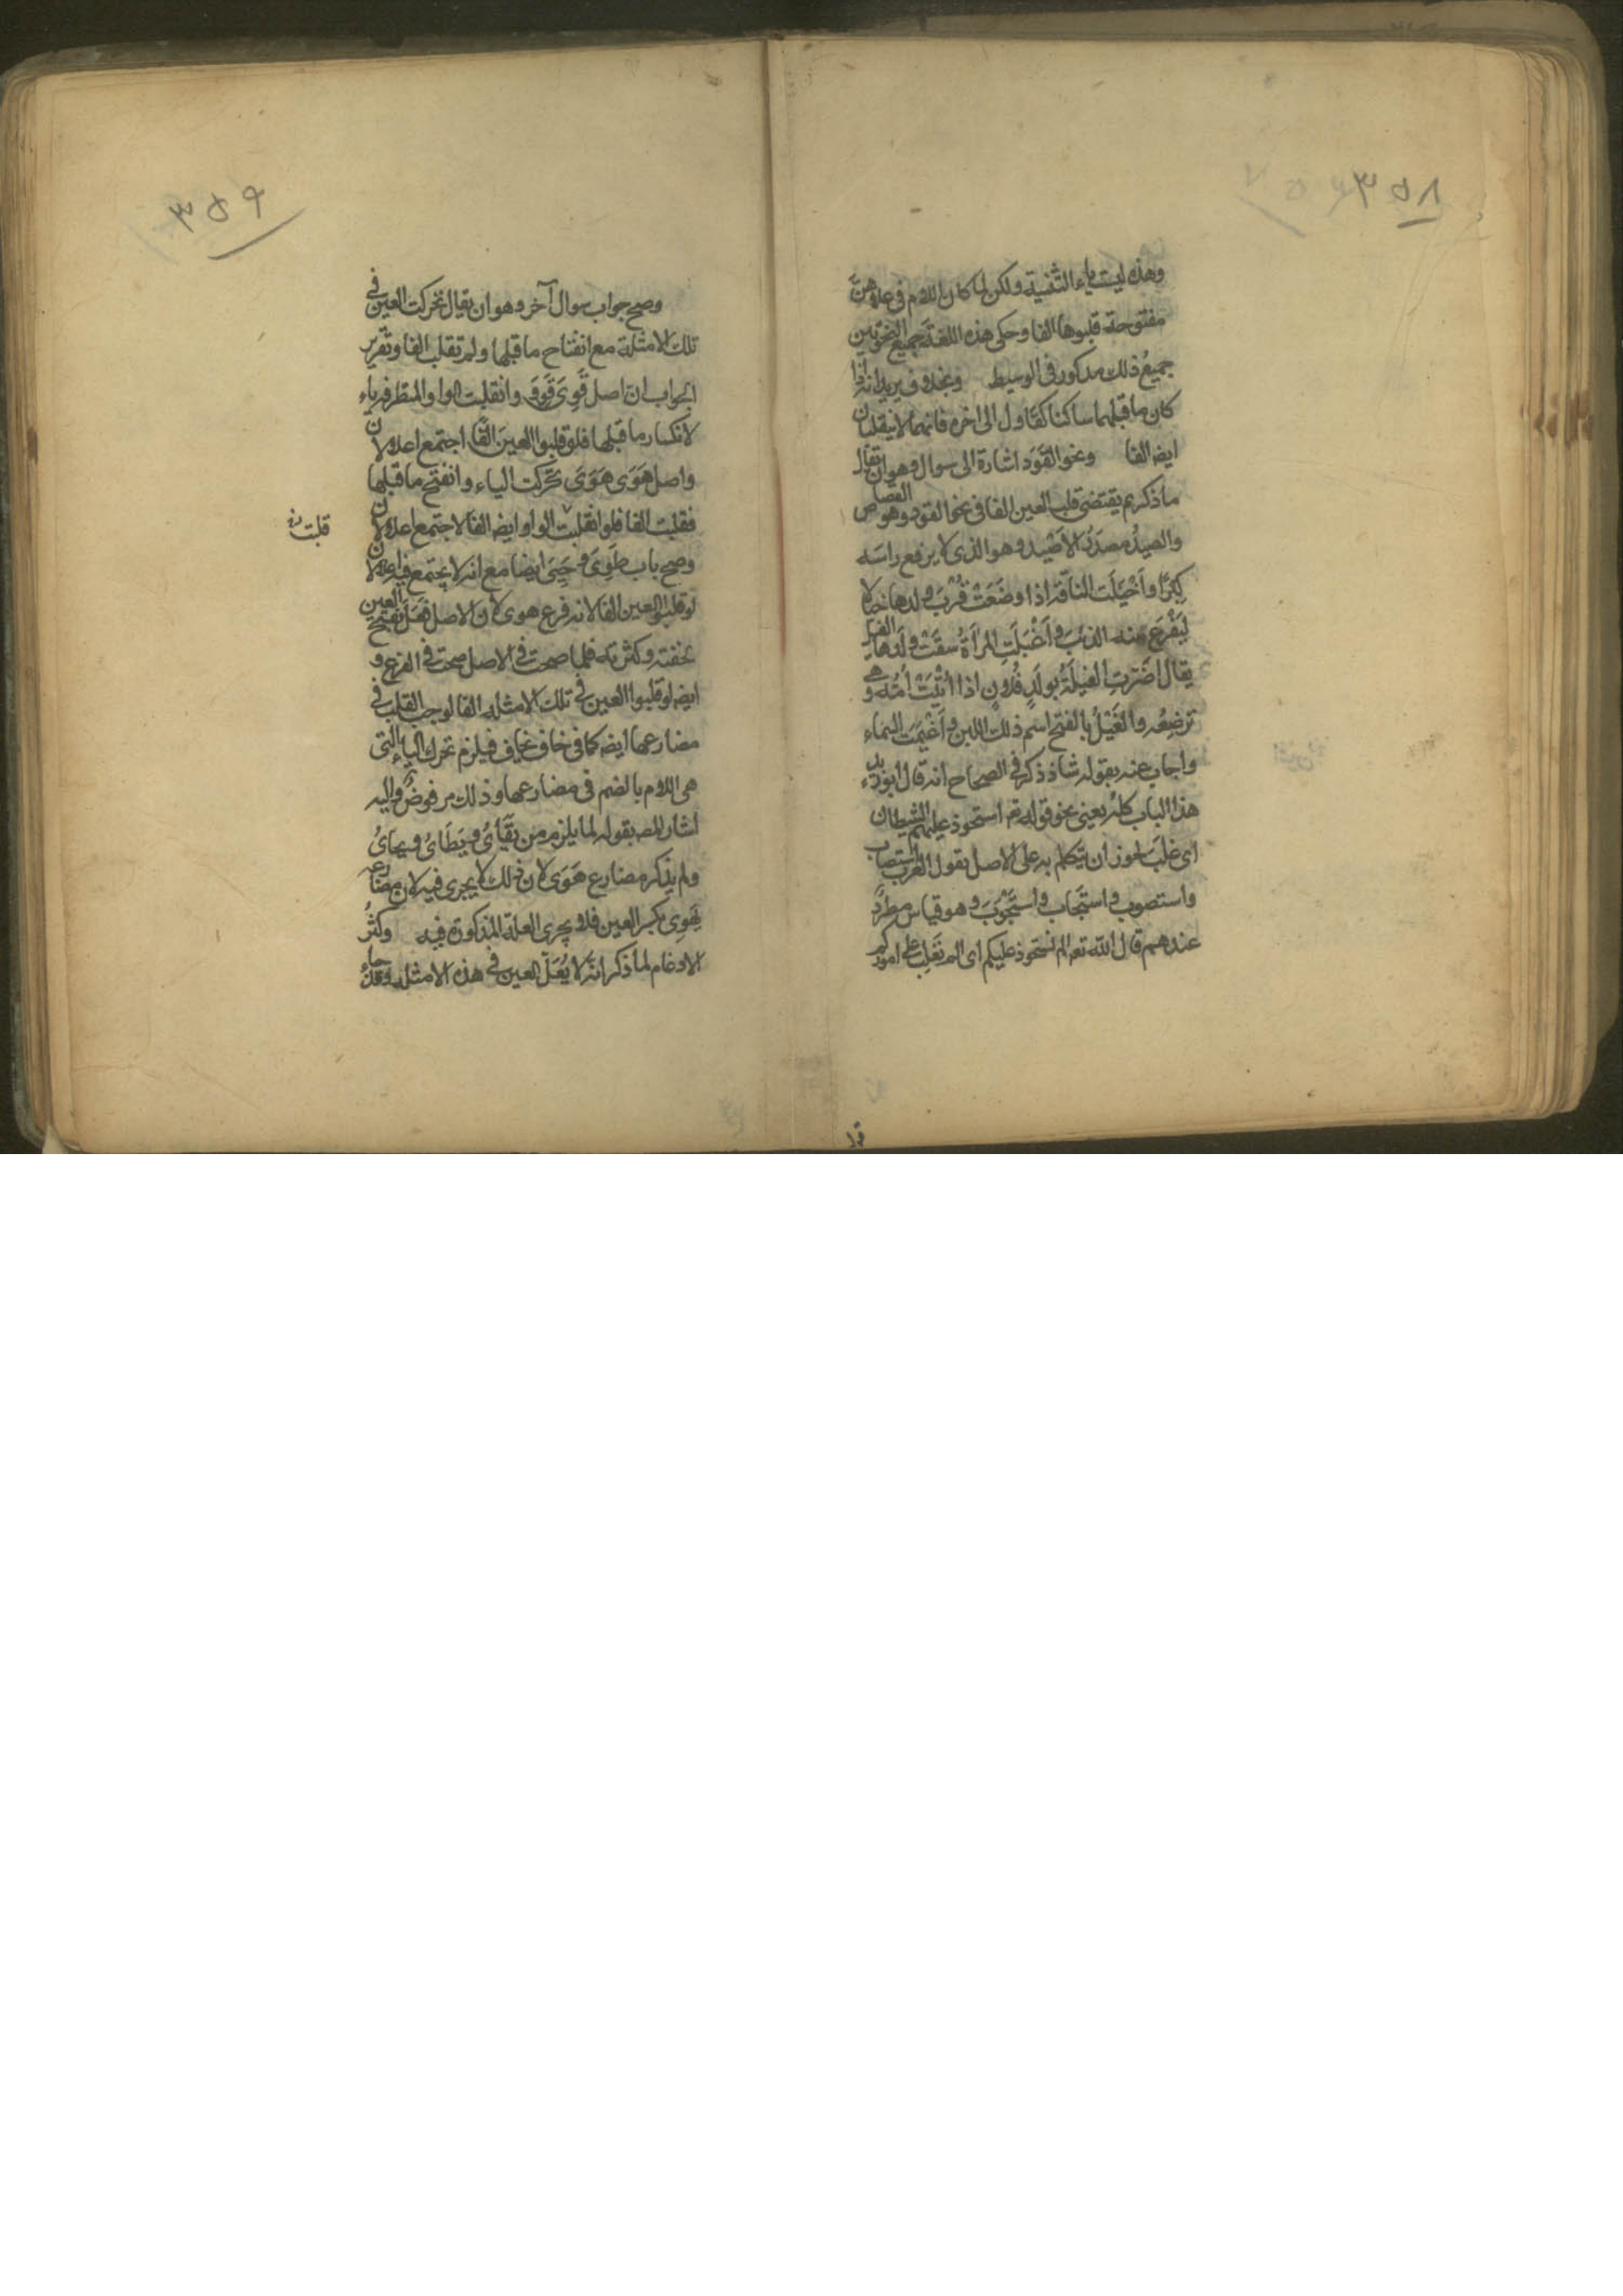 ٣٥٨
وهذه ليست ياء التثنية ولكن لما كان اللام في علاهنّ
مفتوحة قلبوها الفا وحكى هذه اللغة جميع النحويين
جميعُ ذلك مذكور في الوسيط وبخلاف يريد انه اذا
كان ما قبلهما ساكنا كقاول الى اخره فانهما لا ينقلبان
ايضه الفا ونحو القَوَد اشارة الى سوال وهو ان يقال
ما ذكرتم يقتضى قلب العين الفا في نحو القود وهو القصاص
والصيدُ مصدرُ الاَصْيد وهو الذى لا يرفع راسَه
كِبرًا واَخْيَلَت الناقة اذا وضعَتْ قُرْبَ ولدها خيالا
ليَفْزَعَ منه الذئب و اَغْيَلَتِ المرأةُ سقَتْ ولَدها
يقال اضَرّتِ الغيلَةُ بولَدِ فُلانٍ اذا اُتِيَتْ اُمّه وهي
ترضِعُه والغَيْلُ بالفتح اسم ذلك اللبن و اَغْيَمَت السماء
واجاب عنه بقوله شاذ ذكر في الصحاح انه قال ابو زيد
هذا الباب كلّه يعنى نحو قوله تعـ استحوذ عليهم الشيطان
اى غلبَ يجوز ان يتكلم به على الاصل يقول العرب استصاب
واستصوب و استجاب و استَجْوَبَ و هو قياس مطرد
عندهم قال الله تعـ الم نستحوذ عليكم اى الم نغلب على اموركم
٣٥٩
وصح جواب سوال آخر وهو ان يقال تحركت العين في
تلك الامثلة مع انفتاح ما قبلها ولم تقلب الفا وتقرير
الجواب ان اصل قَوِىَ قَوِوَ وانقلبت الواو المتطرفة ياء
لانكسار ما قبلها فلو قلبوا العينَ الفًا اجتمع اعلالان
واصل هَوَى هَوَىَ تحركت الياء وانفتح ما قبلها
فقلبت الفا فلو انقلبت الواو ايضه الفا لاجتمع اعلالان
قلبت
وصح باب طَوِىَ و حَيِىَ ايضا مع انه لا يجتمع فيه اعلالان
لو قلبوا العين الفا لانه فرع هوى لان الاصل فَعَلَ بفتح العين
لخفته وكثرته فلما صحت في الاصل صحت في الفرع و
ايضه لو قلبوا العين في تلك الامثله الفا لوجب القلب في
مضارعها ايضه كما في خاف يخاف فيلزم تحرك الياء التي
هى اللام بالضم في مضارعها وذلك مرفوضٌ واليه
اشار المصـ بقوله لما يلزم من يَقَاىُ و يَطَاىُ و يحاىُ
ولم يذكر مضارع هَوَى لان ذلك لا يجرى فيه لان مضارعه
يَهْوِى بكسر العين فلا يجرى العلة المذكورة فيه وكثُر
الادغام لما ذكر انه لا يُعَلّ العين في هذه الامثله وقد جاء